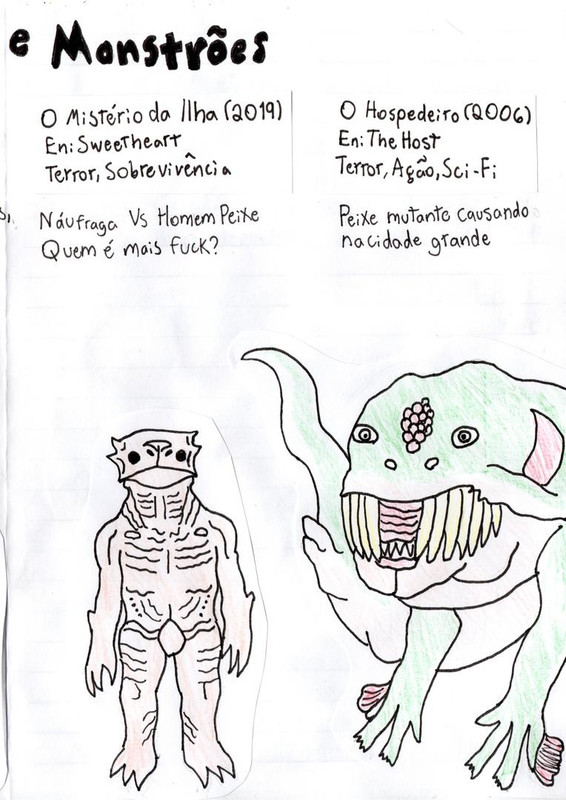 e Monstrões
O Mistério da Ilha (2019)
En: Sweetheart
Terror, Sobrevivência
Náufraga Vs Homem Peixe
Quem é mais fuck?
O Hospedeiro (2006)
En: The Host
Terror, Ação, Sci-Fi
Peixe mutante causando
na cidade grande